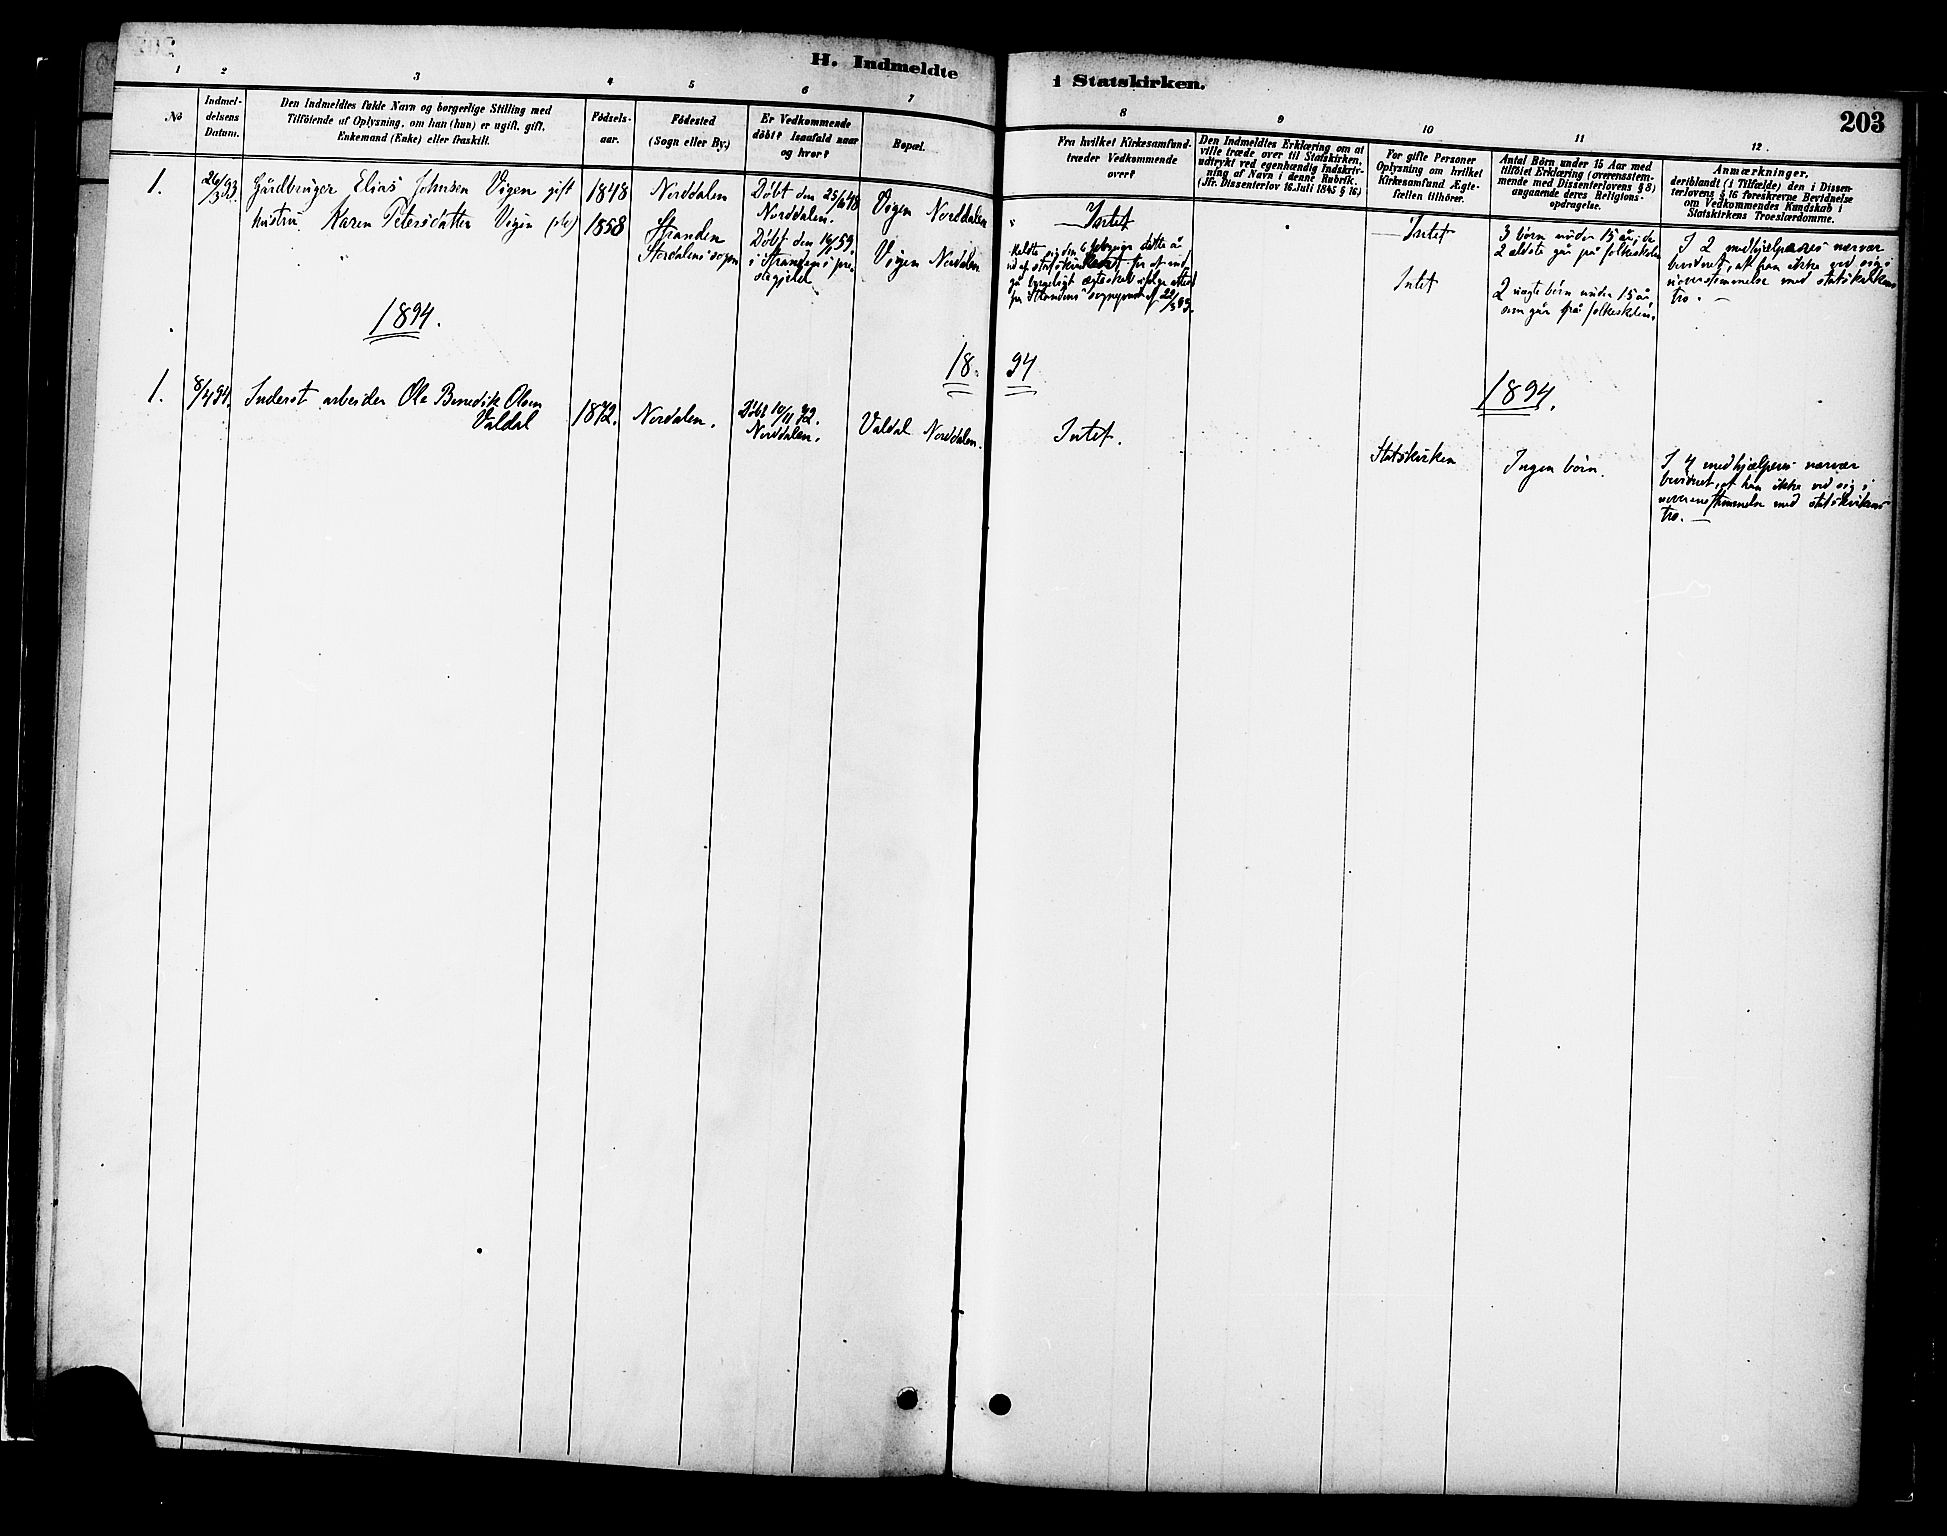 H. Indmeldte
i Statskirken.
203
1
2
3
4
5
6
7
8
9
10
11
12.
No
Indmel-
delsens
Datum.
Den Indmeldtes fulde Navn og borgerlige Stilling med
Tilföiende af Oplysning, om han (hun) er ugift, gift,
Enkemand (Enke) eller fraskilt.
Födsels-
aar.
Födested
(Sogn eller By.)
Er Vedkommende
döbt? Isaafald naar
og hvor?
Bopæl.
Fra hvilket Kirkesamfund
træder Vedkommende
over?
Den Indmeldtes Erklæring om at
ville træde over til Statskirken,
udtrykt ved egenhændig Indskriv-
ning af Navn i denne Rubrik.
(Jfr. Dissenterlov 16 Juli 1845 § 16)
For gifte Personer
Oplysning om hvilket
Kirkesamfund Ægte-
fællen tilhörer.
Antal Börn under 15 Aar med
tilföiet Erklæring (overensstem-
mende med Dissenterlovens § 8)
angaaende deres Religions-
opdragelse.
Anmærkninger.
deriblandt (i Tilfælde) den i Dissen-
terlovens § 16 foreskrevne Bevidnelse
om Vedkommendes Kundskab i
Statskirkens Troeslærdomme.
1.
26/3 93.
Gårdbruger Elias Johnsen Vigen gift
1848
Norddalen
Døbt den 25/6 48
Norddalen.
Vigen Norddalen
Intet
Intet
3 børn under 15 år, de
2 ældste går på folkeskolen
I 2 medhjælperes nærvær
bevidnet, at han ikke ved sig i
uoverstemmelse med statskirkens
tro. —
hustru Karen Petersdatter Vigen
1858
Stranden
Stordalens sogn
Døbt den 59.
i Strandens præ-
stegjeld
Vigen Norddalen
Meldte sig den 6 dette år
ud af statskirken for at ind-
gå borgerligt ægteskab ifølge attest
fra Strandens sognepræst af 22/3 93.
Intet
2 uægte børn under 15 år,
som går på folkeskolen.
1894.
18
94
1894.
1.
8/4 94.
Inderst arbeider Ole Benedik Olsen
Valdal
1872.
Nordalen.
Døbt 10/11 72.
Norddalen.
Valdal Norddalen.
Intet.
Statskirken
Ingen børn.
I 4 medhjælperes nærvær
bevidnet, at han ikke ved sig i
uoverensstemmelse med statskirkens
tro. —